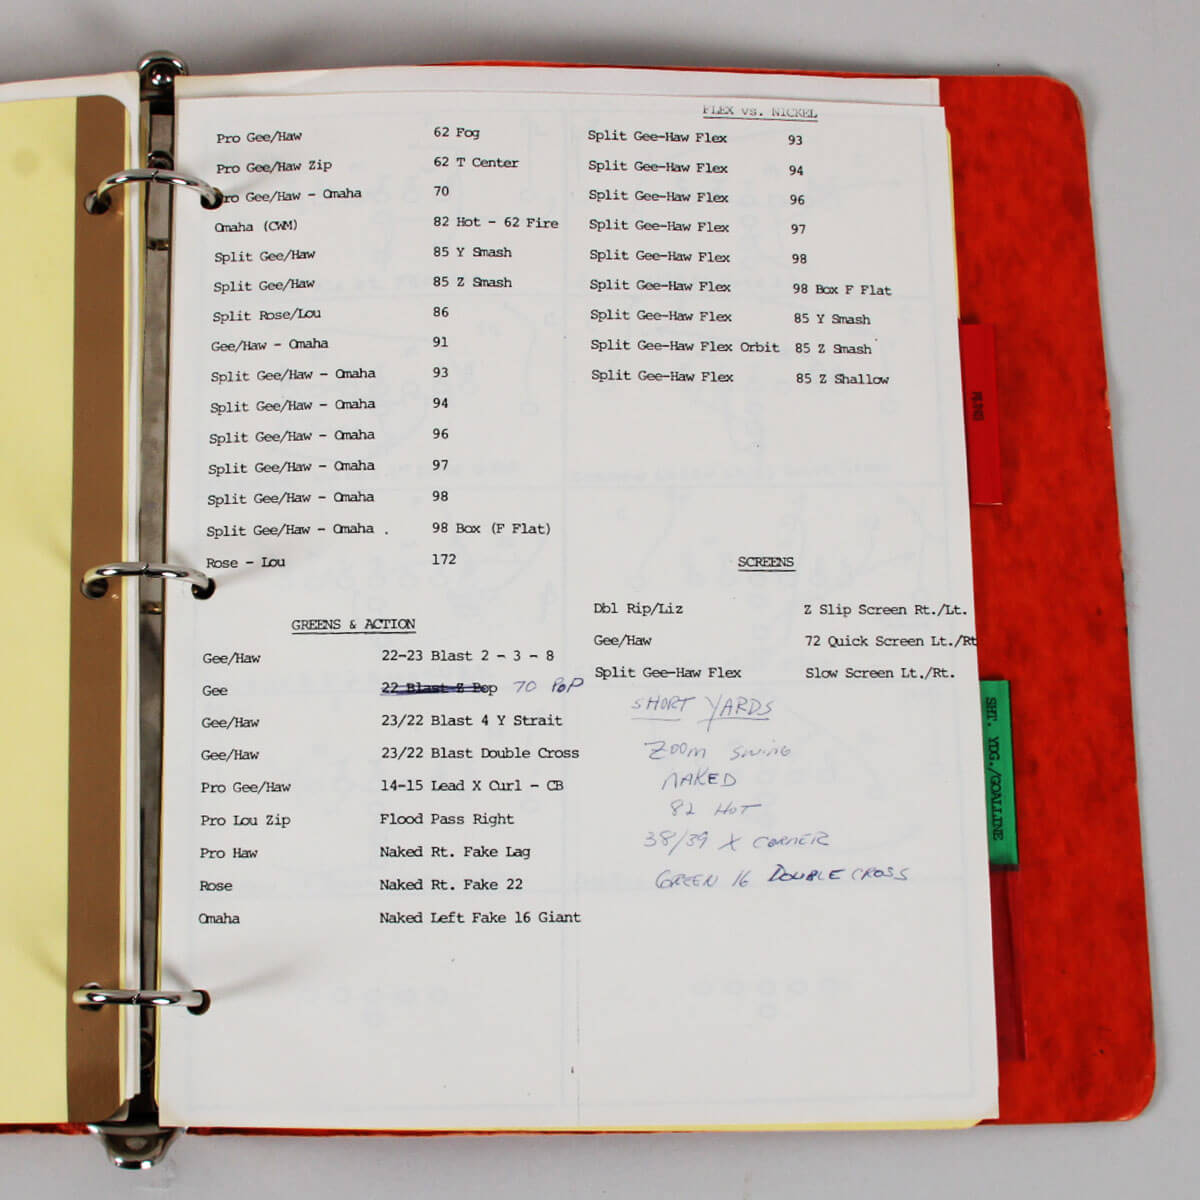 Pro Gee/Haw 62 Fog
Pro Gee/Haw Zip 62 T Center
ro Gee/Haw - Omaha 70
Omaha (CWM) 82 Hot - 62 Fire
Split Gee/Haw 85 Y Smash
Split Gee/Haw 85 Z Smash
Split Rose/Lou 86
Gee/Haw - Omaha 91
Split Gee/Haw - Omaha 93
Split Gee/Haw - Omaha 94
Split Gee/Haw - Omaha 96
Split Gee/Haw - Omaha 97
Split Gee/Haw - Omaha 98
Split Gee/Haw - Omaha . 98 Box (F Flat)
Rose - Lou 172
GREENS & ACTION
Gee/Haw 22-23 Blast 2 - 3 - 8
Gee 22 Blast Z Pop 70 POP
Gee/Haw 23/22 Blast 4 Y Strait
Gee/Haw 23/22 Blast Double Cross
Pro Gee/Haw 14-15 Lead X Curl - CB
Pro Lou Zip Flood Pass Right
Pro Haw Naked Rt. Fake Lag
Rose Naked Rt. Fake 22
Omaha Naked Left Fake 16 Giant
FLEX vs. NICKEL
Split Gee-Haw Flex 93
Split Gee-Haw Flex 94
Split Gee-Haw Flex 96
Split Gee-Haw Flex 97
Split Gee-Haw Flex 98
Split Gee-Haw Flex 98 Box F Flat
Split Gee-Haw Flex 85 Y Smash
Split Gee-Haw Flex Orbit 85 Z Smash
Split Gee-Haw Flex 85 Z Shallow
SCREENS
Dbl Rip/Liz Z Slip Screen Rt./Lt.
Gee/Haw 72 Quick Screen Lt./Rt
Split Gee-Haw Flex Slow Screen Lt./Rt.
SHORT YARDS
ZOOM SWING
NAKED
82 HOT
38/39 X CORNER
GREEN 16 DOUBLE CROSS
SHT. YDG./GOALLINE